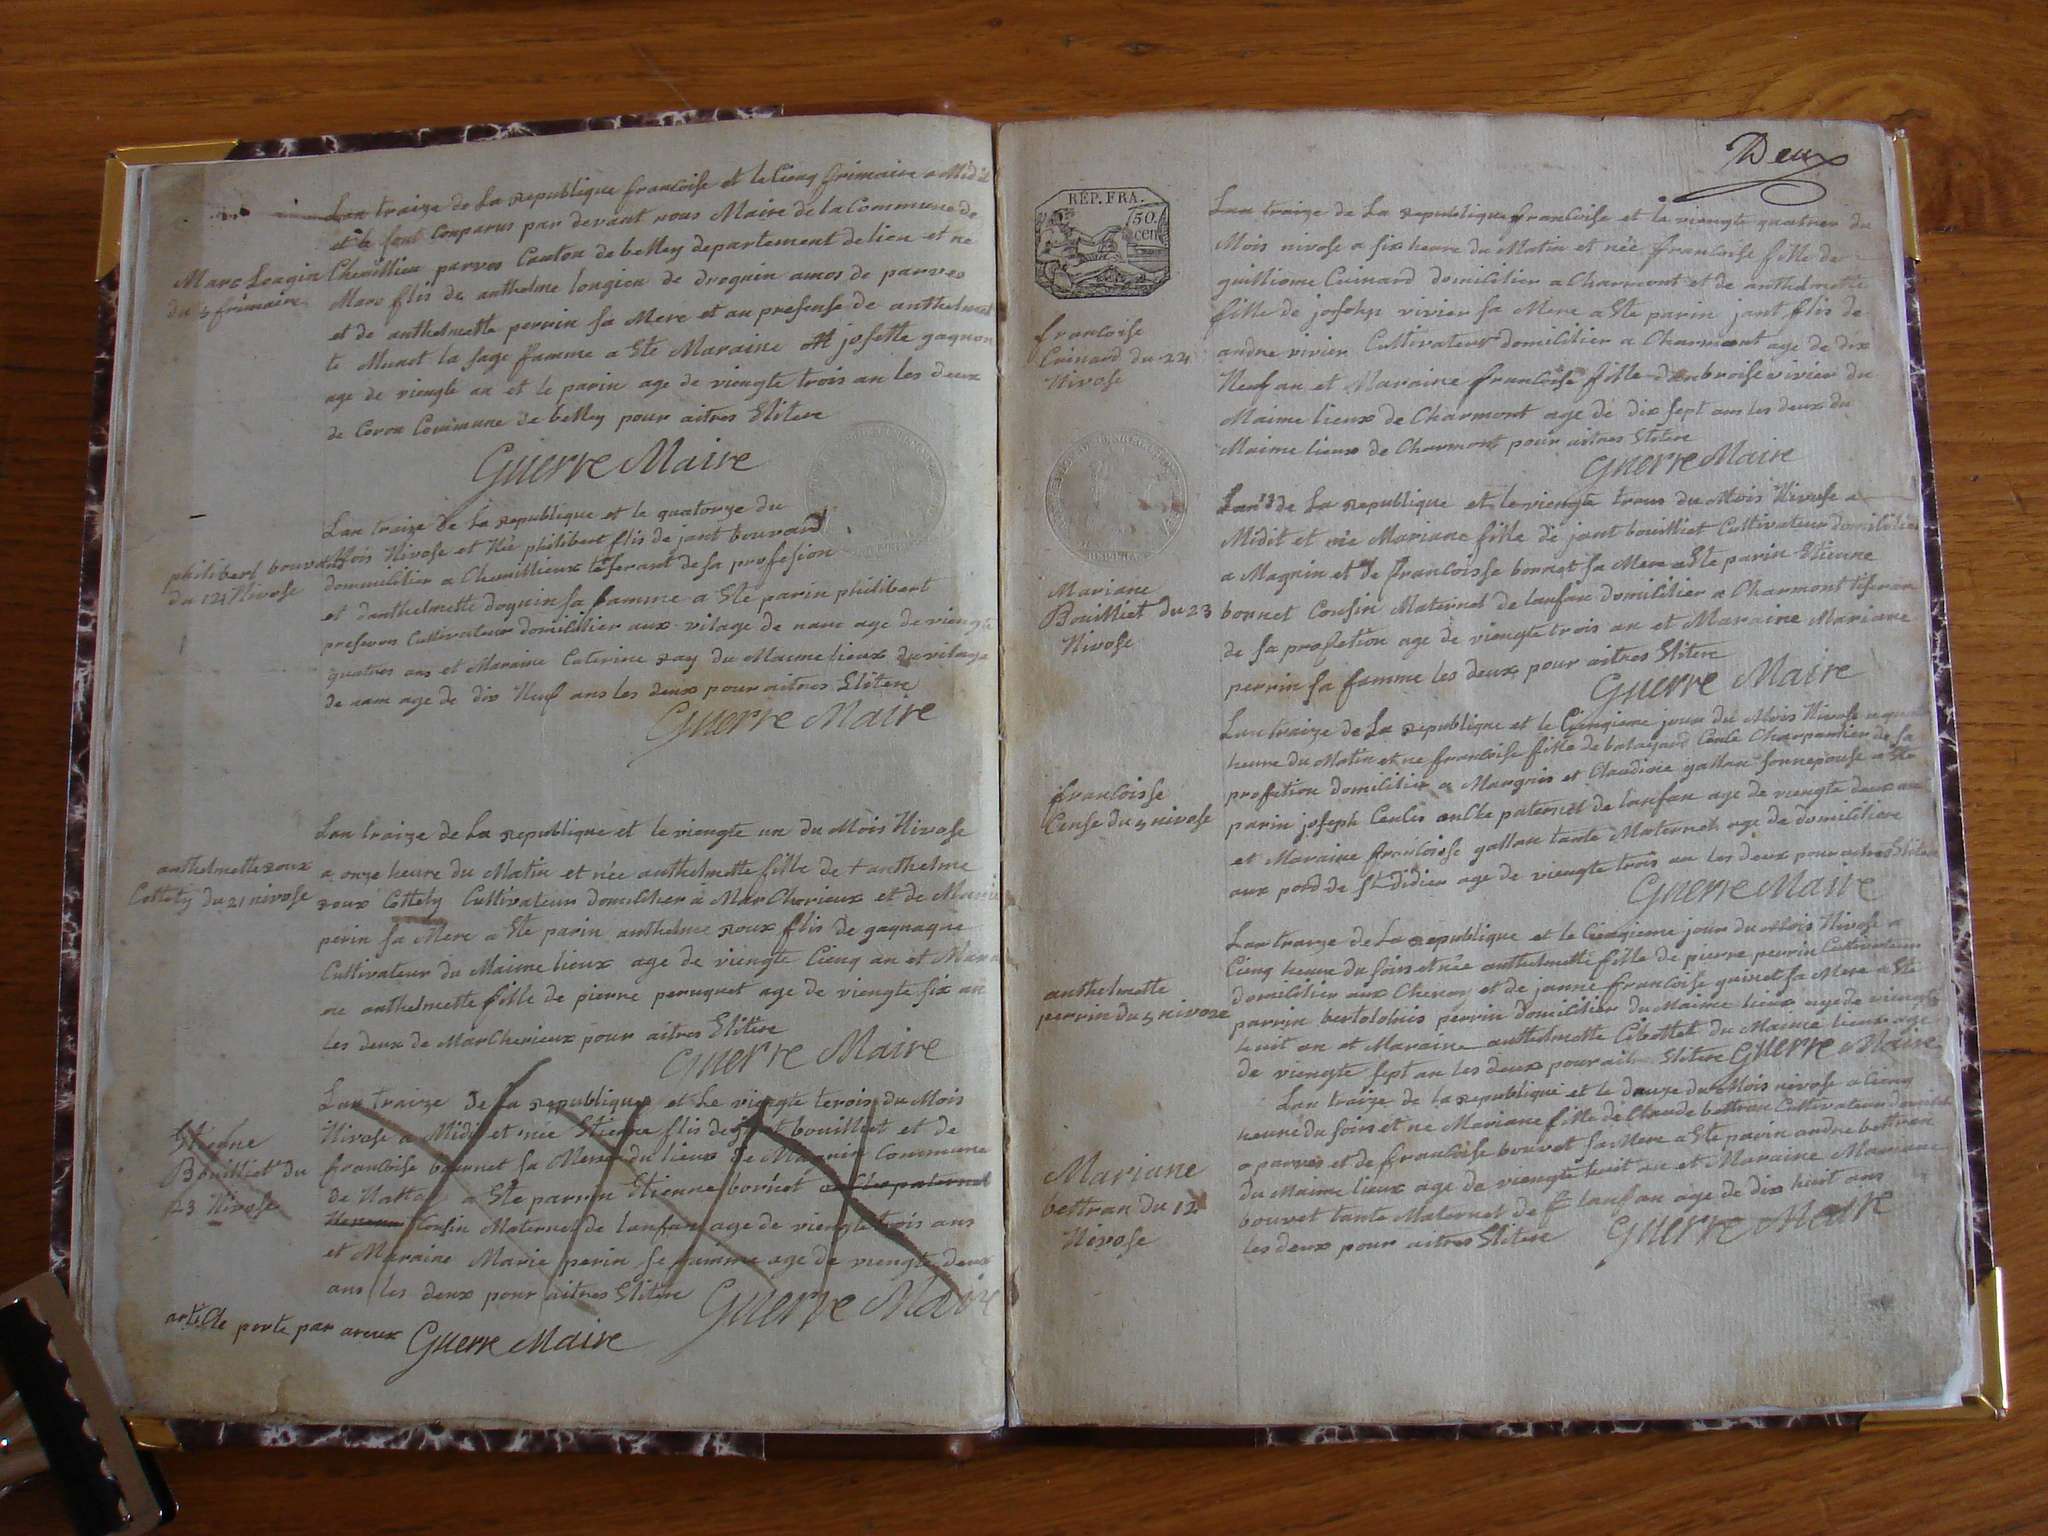 Lan traize de La republique francoise et le Cienq frimaire a Midit
et le sont Comparus par devant nous Maire de la Commune de
Marc Longin
du 5 frimaire
Cheuillieu parves Canton de belley departement de lien et ne
Marc flis de anthelme longien de drognin amos de parves
et de anthelmette perrin sa Mere et au presense de anthelmet
te Munet la sage famme a Ete Maraine josette gagnon
age de viengte an et le parin age de viengte trois an les deux
de Coron Commune de belley pour aitres Elitere
Guerre Maire
philibert bouvard
du 14 Nivose
Lan traize de La republique et le quatorze du
Mois Nivose et Née philibert flis de jant bouvard
domicilier a Chemillieux tiserant de sa profesion
et danthelmette dognin sa famme a Ete parin philibert
Cultivateur domicilier aux vilage de nam age de viengte
quatres ans et Maraine Caterine ray du Maime lieux du vilage
de nam age de dix Neuf ans les deux pour aitres Elitere
Guerre Maire
anthelmette roux
Cottety du 21 nivose
Lan traize de La republique et le viengte un du Mois Nivose
a onze heure du Matin et née anthelmette fille de + anthelme
roux Cottety Cultivateur domicilier a MarCherieux et de Marie
perin sa Mere a Ete parin anthelme roux flis de
Cultivateur du Maime lieux age de viengte Cienq an et Marai
ne anthelmette fille de pierre peruquet age de viengte six an
les deux de MarCherieux pour aitres Elitere
Guerre Maire
Etiene
Bouilliet du
23 Nivose
Lan traize de La republique et Le viengte terois du Mois
Nivose a Midit et née Etiene flis de jant bouilliet et de
francoise bornet sa Mere du lieux de Magnin Commune
de Nattage a Ete parrin Etienne bornet oncle paternel
Cousin Maternel de lanfan age de viengte trois ans
et Maraine Marie perin sa famme age de viengte deux
ans les deux pour aitres Elitere Guerre Maire
article porte par areux Guerre Maire
Deux
REP. FRA.
50
cen
francoise
Cuinard du 24
Nivose
Lan traize de La republique francoise et le viengte quatrer du
Mois nivose a six heure du Matin et née francoise fille de
guilliome Cuinard domicilier a Charmont et de anthelmette
fille de josephp vivier sa Mere a Ete parin jant flis de
andre vivier Cultivateur domicilier a Charmont age de dix
Neuf an et Maraine francoise fille danbroise vivier du
Maime lieux de Charmont age de dix sept ans les deux du
Maime lieux de Charmont pour aitres Elitere
Guerre Maire
Mariane
Bouilliet du 23
Nivose
Lan 13 de La republique et le viengte trois du Mois Nivose a
Midit et née Mariane fille de jant bouilliet Cultivateur domicilier
a Magnin et de francoisse bornet sa Mere a Ete parin Etienne
bornet Cousin Maternel de lanfan domicilier a Charmont tiseran
de sa profetion age de viengte trois an et Maraine Mariane
perrin sa famme les deux pour aitres Elitere
Guerre Maire
francoisse
Ceuse du 5 nivose
Lan traize de La republique et le Cienqieme jour du Mois Nivose a quatre
heure du Matin et ne francoise fille de Charpantier de sa
profution domicilier a et Claudine gallan sonnepouse a Ete
parin joseph onlke paternel de lanfan age de viengte deux an
et Maraine francoise gallan tante Maternel age de domiciliere
aux pord de St didier age de viengte trois an les deux pour aitres Elitere
Guerre Maire
anthelmette
perrin du 5 nivose
Lan traize de La republique et le Cienqieme jour du Mois Nivose a
Cienq heure du soirs et née anthelmette fille de pierre perrin Cultivateur
domicilier aux et de janne francoise sa Mere a Ete
parrin perrin domicilier du Maime lieux age de viengte
huit an et Maraine anthelmette du Maime lieux age
de viengte sept an les deux pour aitre Elitere Guerre Maire
Mariane
bettran du 12
Nivose
Lan traize de la republique et le douze du Mois nivose a Cienq
heure du soirs et ne Mariane fille de Claude bettran Cultivateur domicilie
a parves et de francoise bouvet sa Mere a Ete parin andre bettran
du Maime lieux age de viengte huit an et Maraine Mariane
bouvet tante Maternel de lanfan age de dix huit ans
les deux pour aitres Elitere Guerre Maire